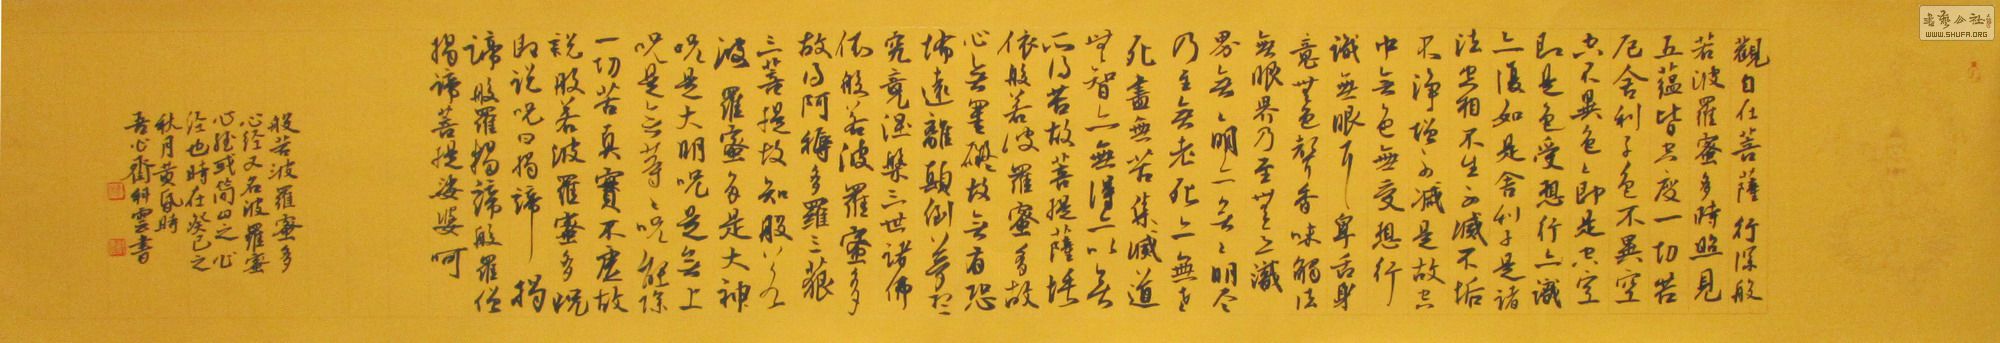 觀自在菩薩行深般
若波羅蜜多時照見
五蘊皆空度一切苦
厄舍利子色不異空
空不異色色即是空空
即是色受想行亦識
亦復如是舍利子是諸
法空相不生不滅不垢
不淨增不減是故空
中無色無受想行
識無眼耳鼻舌身
意無色聲香味觸法
無眼界乃至無意識
界無無明亦無無明盡
乃至無老死亦無老
死盡無苦集滅道
無智亦無得亦以無
所得苦故菩提薩埵
依般若波羅蜜多故
心無罣礙故無有恐
怖遠離顛倒夢想
究竟涅槃三世諸佛
依般若波羅蜜多
故得阿耨多羅三藐
三菩提故知般若
波羅蜜多是大神
咒是大明咒是無上
咒是無等等咒能除
一切苦真實不虛故
說般若波羅蜜多咒
即說咒曰揭諦揭
諦般羅揭諦般羅僧
揭諦菩提娑婆呵
般若波羅蜜多
心經又名波羅蜜
心經或簡曰之心
經也時在癸巳之
秋月黃昏時
吾心齋科雲書
書藝公社
WWW.SHUFA.ORG